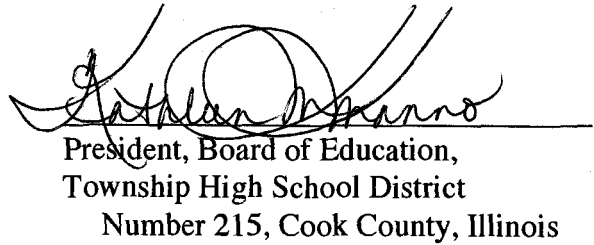 Kathleen M Manno
President, Board of Education,
Township High School District
Number 215, Cook County, Illinois